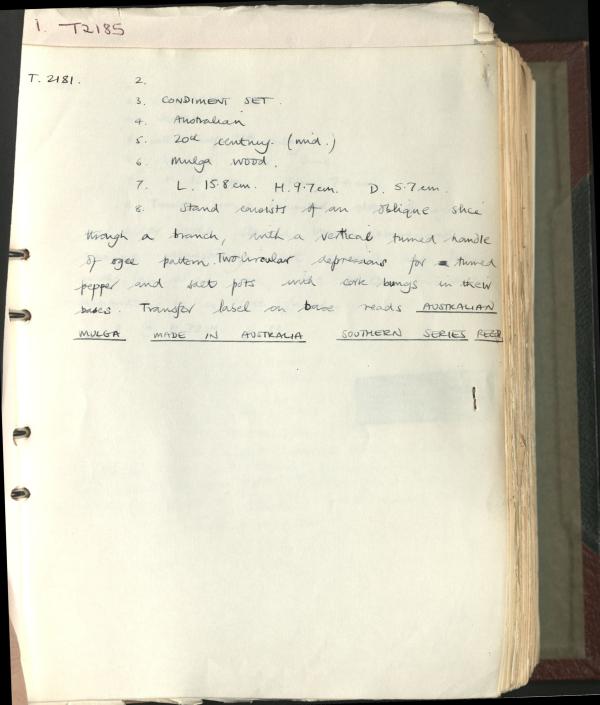 1. T2185
T. 2181. 2.
3. CONDIMENT SET.
4. Australian
5. 20th century. (mid.)
6. Mulga wood.
7. L. 15.8cm. H. 9.7cm. D. 5.7cm.
8. Stand consists of an oblique slice
through a branch, with a vertical turned handle
of ogee pattern. Two circular depressions for turned
pepper and salt pots with cork bungs in their
bases. Transfer label on base reads AUSTRALIAN
MULGA MADE IN AUSTRALIA SOUTHERN SERIES REGD